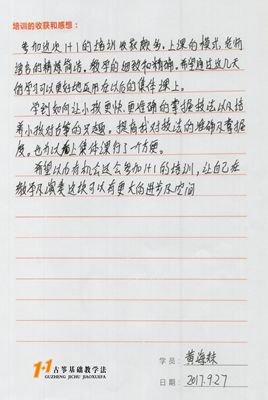 培训的收获和感想：
参加这次1+1的培训收获颇多，上课的模式，老师
语言的精炼简洁，教学的细致和精确。希望通过这几天
的学习可以更好地应用在以后的集体课上。
学到如何让小孩更快、更准确的掌握技法以及培
养小孩对古筝的兴趣。提高我对技法的准确及掌握
度。也可以上集体课行了个方便。
希望以后有机会还会参加1+1的培训，让自己在
教学及演奏这块可以有更大的进步及空间
1+1古筝基础教学法
GUZHENG JICHU JIAOXUEFA
学员：黄海妹
日期：2017.9.27